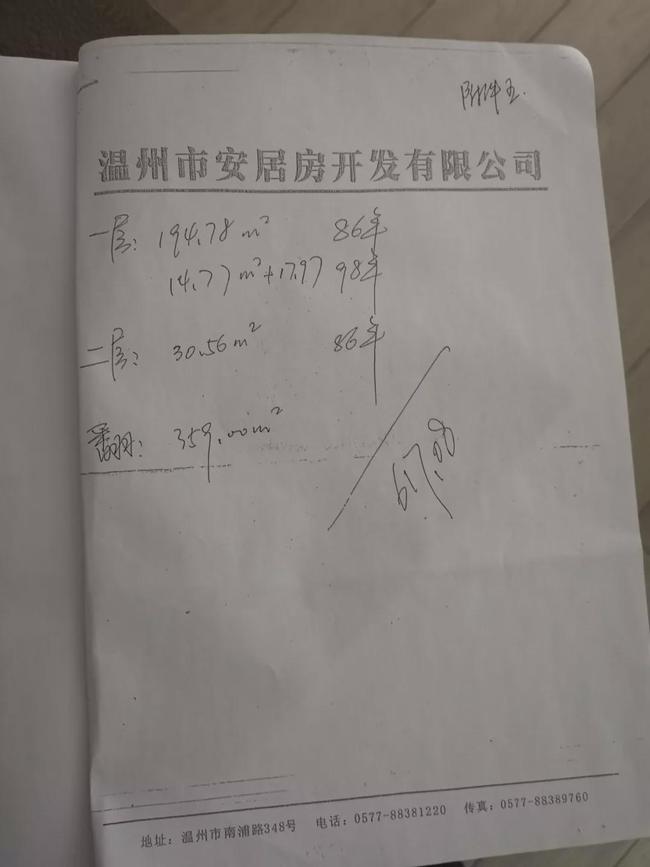 附件五
温州市安居房开发有限公司
一层: 194.78 m² 86年
14.77 m² + 17.97 98年
二层: 30.56 m² 86年
翻: 359.00 m²
617.08
地址: 温州市南浦路348号 电话: 0577-88381220 传真: 0577-88389760